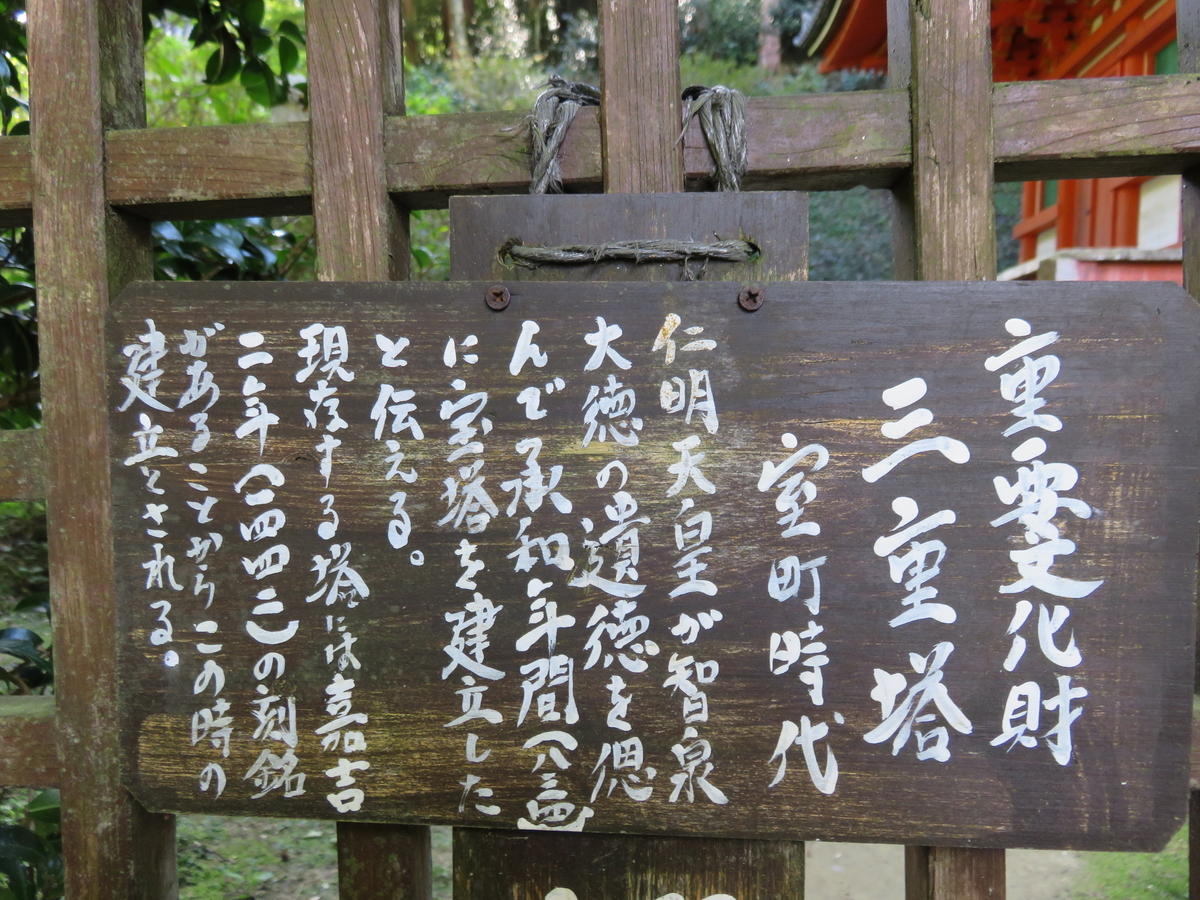 重要文化財
三重塔
室町時代
仁明天皇が智泉
大徳の遺徳を偲
んで承和年間(八三四)
に宝塔を建立した
と伝える。
現存する塔には嘉吉
二年(一四四二)の刻銘
があることからこの時の
建立とされる。